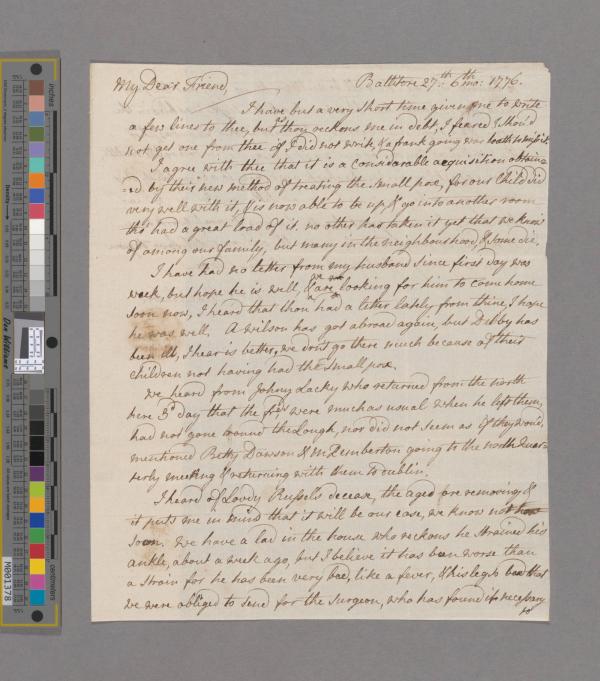 My Dear Friend,
Balitore 27th. 6th mo: 1776.
I have but a very short time given me to write
a few lines to thee, but as thou reckons me in debt, I feared I shou'd
not get one from thee if I did not write, & a frank going was loath to miss it.
I agree with thee that it is a considarable acquisition obtain-
-ed by this new method of treating the small pox, for our Child did
very well with it, & is now able to be up, & go into another room
tho' had a great load of it. no other has taken it yet that we know
of among our family, but many in the neighbourhood, & some die.
I have had no letter from my husband since first day was
week, but hope he is well, & we are looking for him to come home
soon now, I heard that thou had a letter lately from thine, I hope
he was well. A Wilson has got abroad again, but Debby has
been ill, I hear is better, we dont go there much because of their
children not having had the small pox.
We heard from Johny Lacky who returned from the north
here 3d day that the frds were much as usual when he left them,
had not gone round the Lough, nor did not seem as if they wou'd,
mentioned Betty Dawson & M Pemberton going to the north Quar-
terly meeting & returning with them to Dublin.
I heard of Lovdy Russels decease, the aged are removing, &
it puts me in mind that it will be our case, we know not how
soon. We have a lad in the house who reckons he strained his
ankle, about a week ago, but I believe it has been worse than
a strain for he has been very bad, like a fever, & his leg so bad that
we were obliged to send for the surgeon, who has found it necessary
to
inches
centimetres
Don Williams
M001378